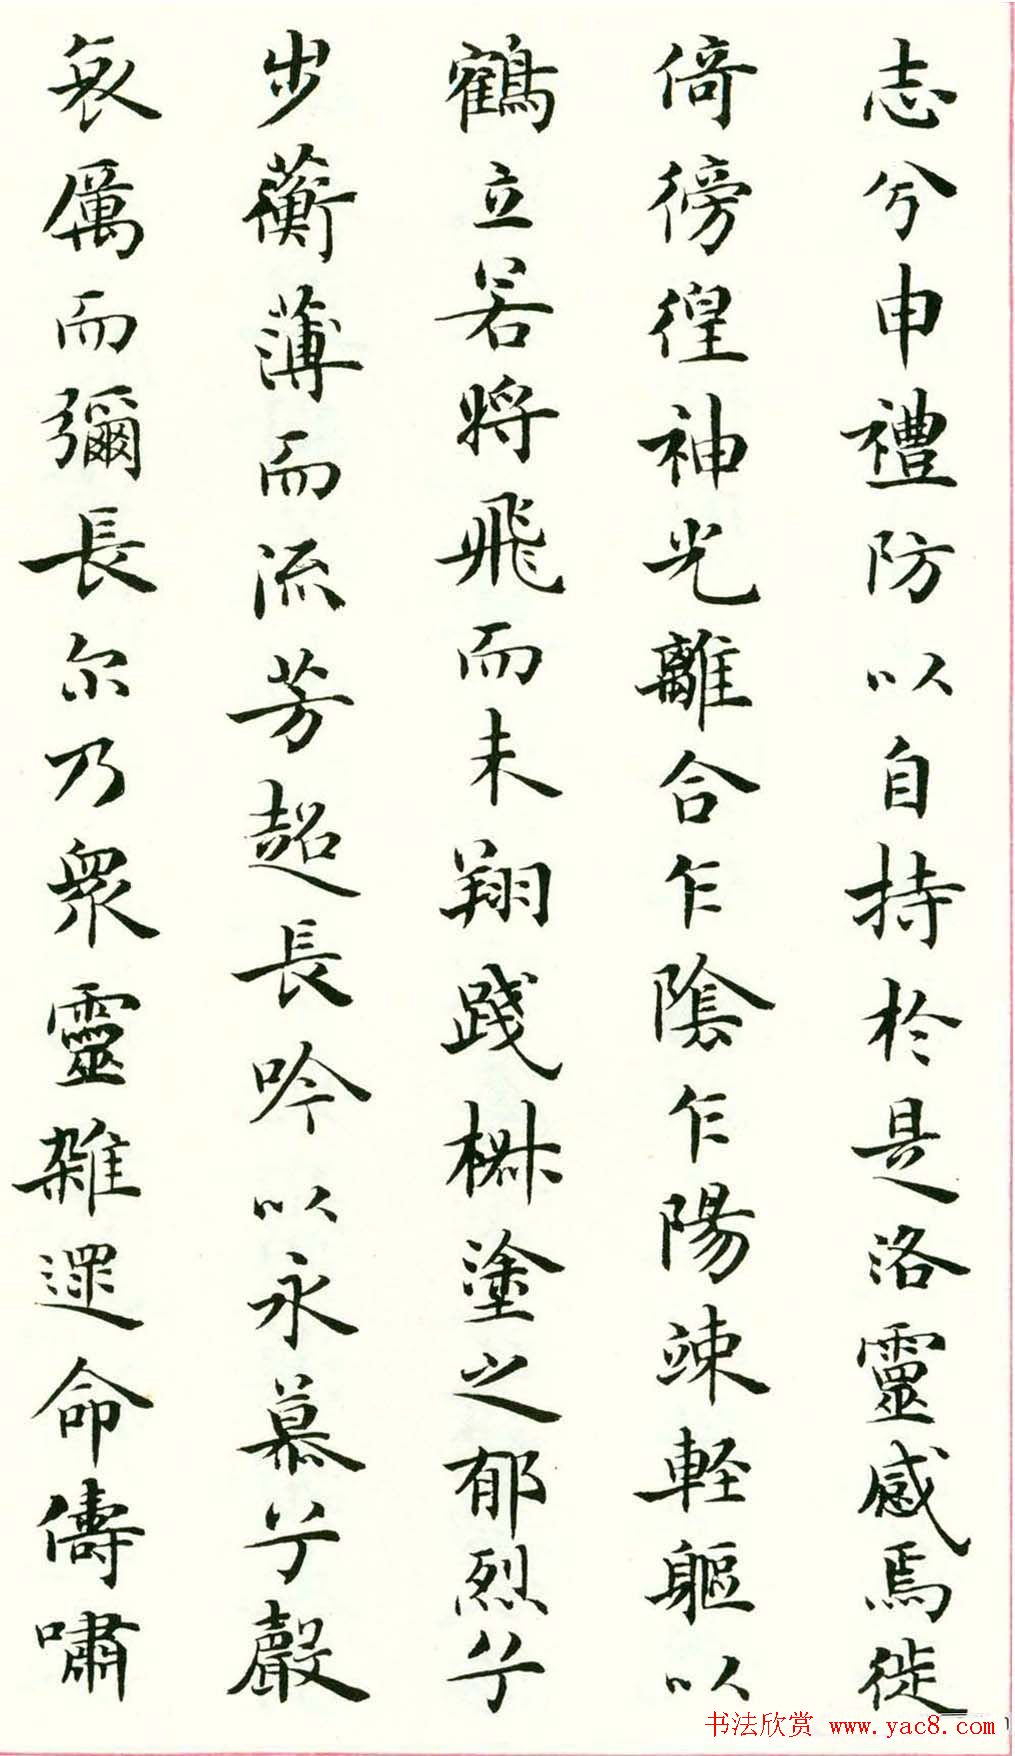 志兮申禮防以自持於是洛靈感焉徙
倚徬徨神光離合乍陰乍陽竦軽軀以
鶴立若将飛而未翔踐椒塗之郁烈兮
步蘅薄而流芳超長吟以永慕兮聲
哀厲而彌長尔乃衆靈雜遝命儔嘯
书法欣赏 www.yac8.com